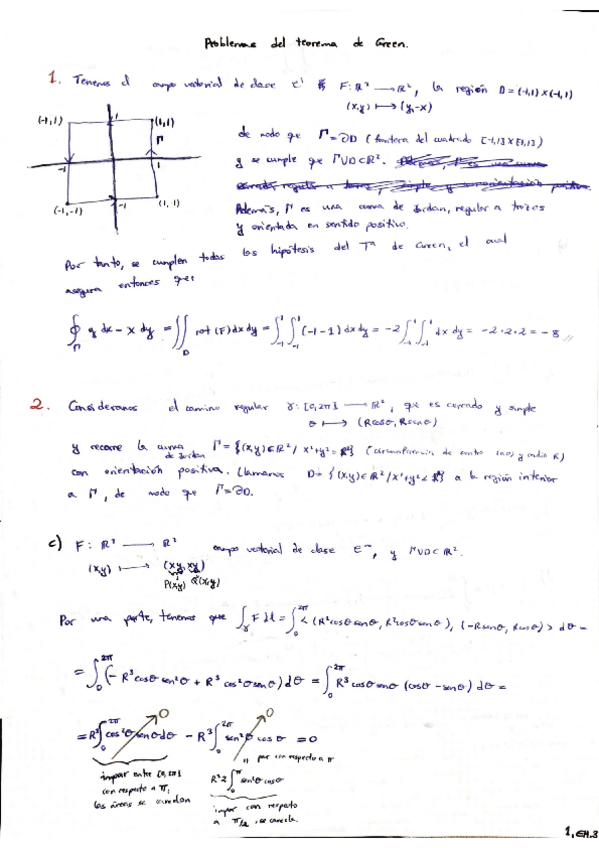 Problemas del teorema de Green.
1. Tenemos el campo vectorial de clase C¹ F: ℝ² → ℝ², la región D = (-1,1)×(-1,1)
(x,y) ↦ (y,-x)
(-1,1) 1 (1,1)
Γ
-1 1
(-1,-1) -1 (1,1)
de modo que Γ = ∂D (frontera del cuadrado [-1,1]×[-1,1])
y se cumple que Γ∪D⊂ℝ².
Además, Γ es una curva de Jordan, regular a trozos
y orientada en sentido positivo.
Por tanto, se cumplen todas las hipótesis del Tª de Green, el cual
asegura entonces que:
∮_Γ y dx - x dy = ∬_D rot(F) dx dy = ∫_{-1}^{1} ∫_{-1}^{1} (-1-1) dx dy = -2 ∫_{-1}^{1} ∫_{-1}^{1} dx dy = -2·2·2 = -8 //
2. Consideramos el camino regular γ: [0,2π] → ℝ², que es cerrado y simple
θ ↦ (Rcosθ, Rsenθ)
y recorre la curva de Jordan Γ = {(x,y)∈ℝ² / x²+y² = R²} (circunferencia de centro (0,0) y radio R)
con orientación positiva. Llamamos D = {(x,y)∈ℝ² / x²+y² < R²} a la región interior
a Γ, de modo que Γ = ∂D.
c) F: ℝ² → ℝ² campo vectorial de clase C^∞, y Γ∪D⊂ℝ².
(x,y) ↦ (xy, xy)
P(x,y) Q(x,y)
Por una parte, tenemos que ∫_γ F dl = ∫_0^{2π} < (R²cosθ senθ, R²cosθ senθ), (-Rsenθ, Rcosθ) > dθ =
= ∫_0^{2π} (-R³ cosθ sen²θ + R³ cos²θ senθ) dθ = ∫_0^{2π} R³ cosθ senθ (cosθ - senθ) dθ =
= R³ ∫_0^{2π} cos²θ senθ dθ - R³ ∫_0^{2π} sen²θ cosθ = 0
0 0
impar entre [0,2π]
con respecto a π,
las áreas se cancelan
|| par con respecto a π
R³ 2 ∫_0^π sen²θ cosθ
impar con respeto
a π/2, se cancela.